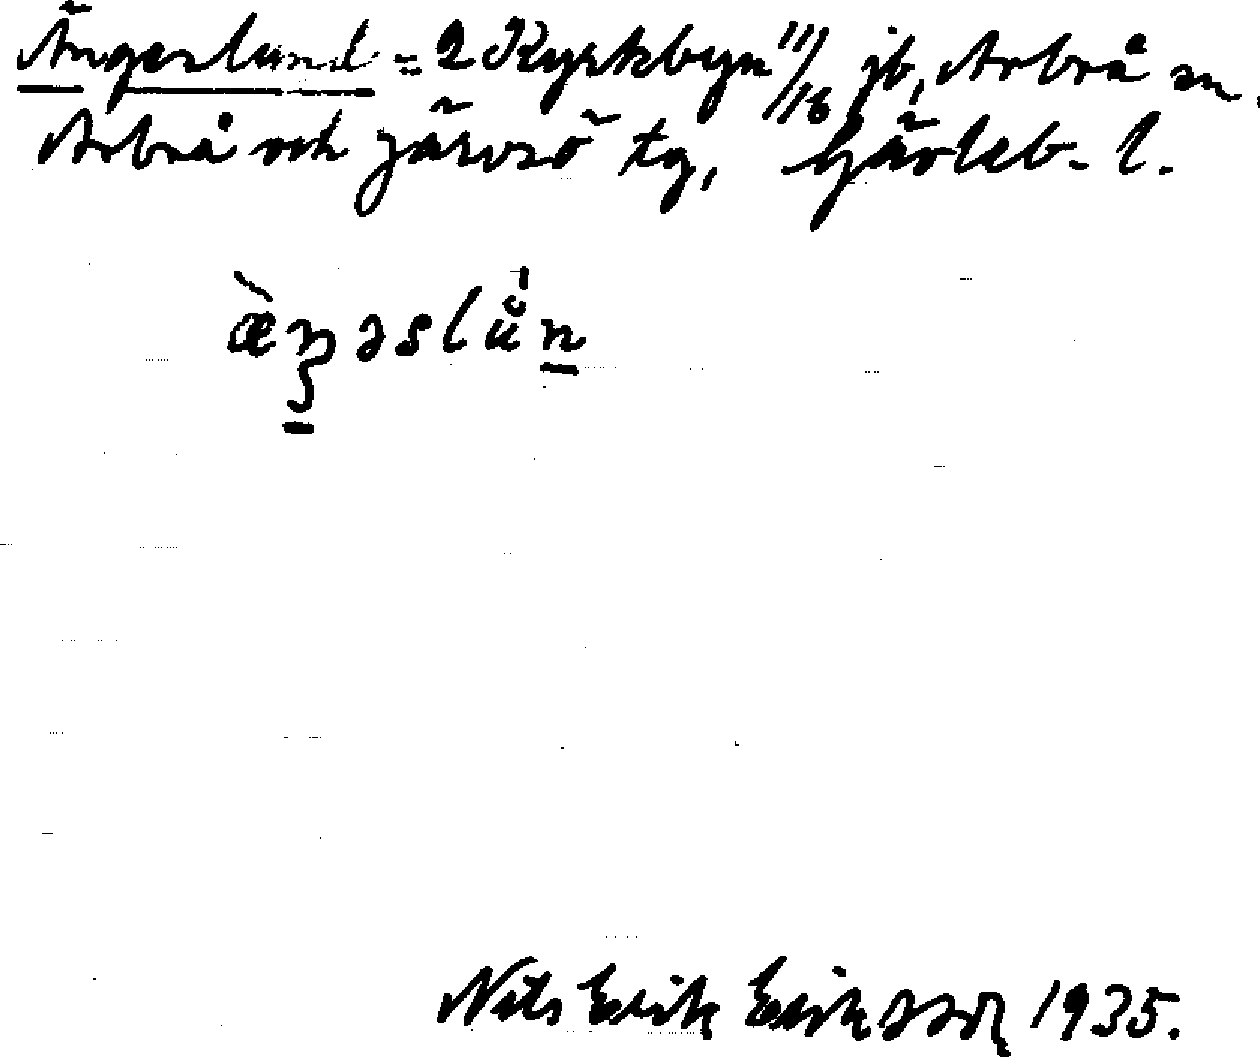 Ängerslund = 2 Kyrkbyn 11/16 jb, Arbrå sn,
Arbrå och Järvsö tg, Gävleb. l.
Nils Erik Eriksson 1935.